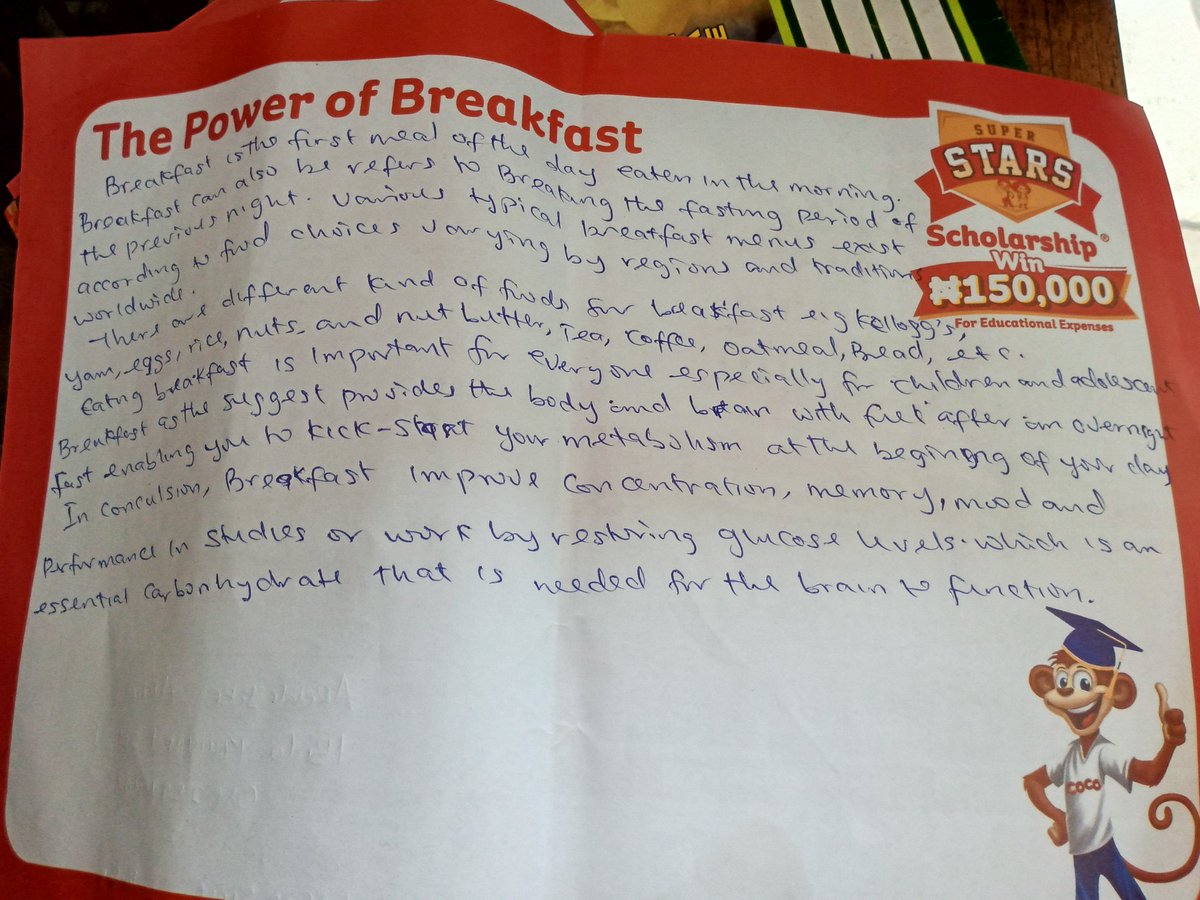 The Power of Breakfast
SUPER
STARS
Scholarship®
Win
₦150,000
For Educational Expenses
Breakfast is the first meal of the day eaten in the morning.
Breakfast can also be refers to Breaking the fasting period of
the previous night. Various typical breatfast menus exist
according to food choices varying by regions and traditions
worldwide.
There are different kind of foods for breakfast e.g kellogg's,
yam, eggs, rice, nuts, and nut butter, Tea, Coffee, oatmeal, Bread, etc.
Eating breakfast is Important for everyone especially for children and adolescent
Breakfast as the suggest provides the body and brain with fuel after an overnight
fast enabling you to kick-start your metabolism at the begining of your day
In conculsion, Breakfast improve Concentration, memory, mood and
Performance In studies or work by restoring glucose levels. which is an
essential Carbonhydrate that is needed for the brain to function.
COCO